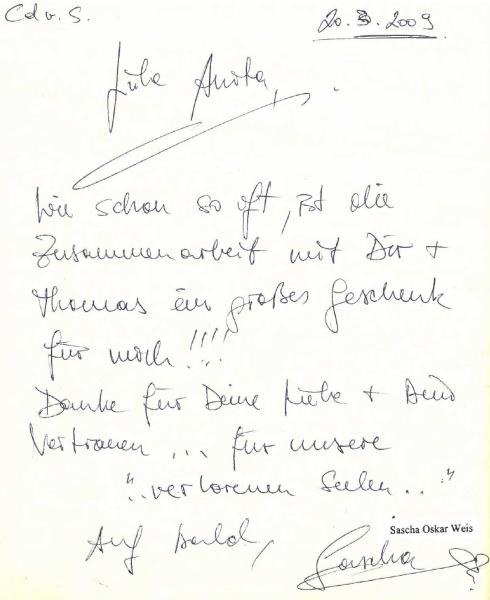 Cd v. S.
20.3.2009
Liebe Anita,
Wie schon so oft, ist die
Zusammenarbeit mit Dir +
Thomas ein großes Geschenk
für mich!!!!
Danke für Deine Liebe +
Vertrauen ... für unsere
"..verlorenen Seelen.."
Auf bald,
Sascha Oskar Weis
Sascha